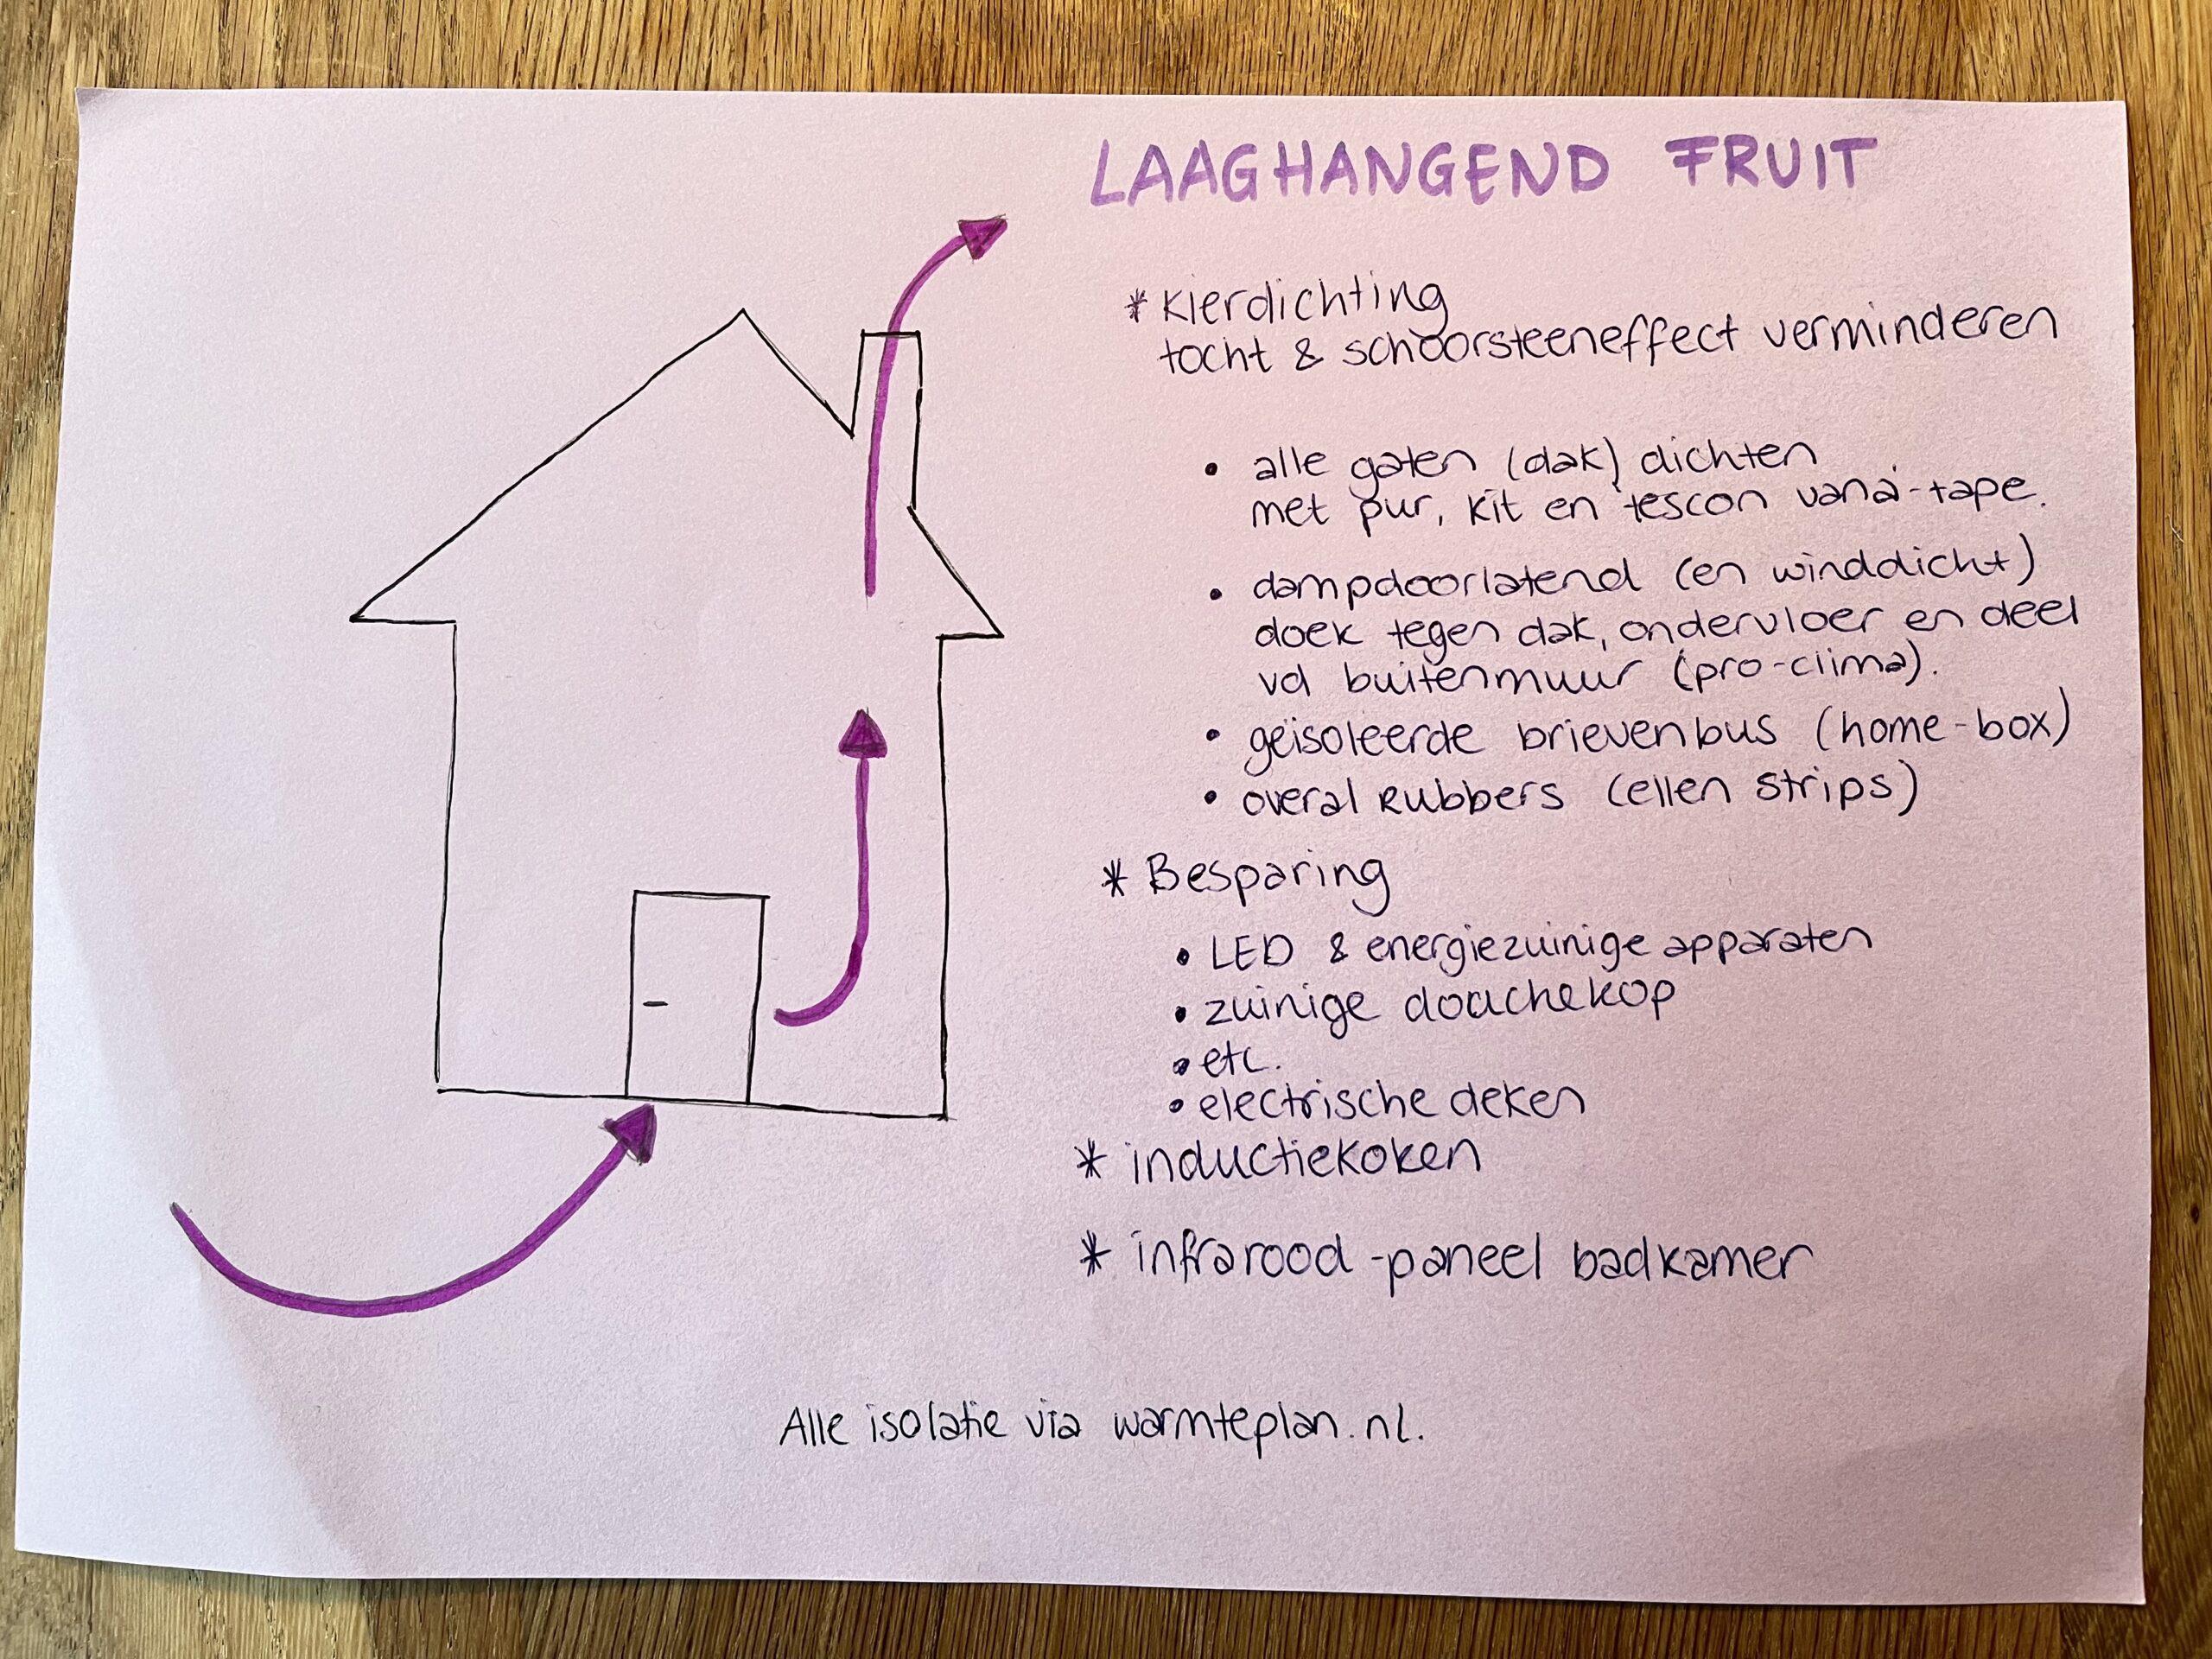 LAAGHANGEND FRUIT
* Kierdichting
tocht & schoorsteeneffect verminderen
• alle gaten (dak) dichten
met pur, kit en tescon vana-tape.
• dampdoorlatend (en winddicht)
doek tegen dak, ondervloer en deel
vd buitenmuur (pro-clima).
• geïsoleerde brievenbus (home-box)
• overal Rubbers (ellen strips)
* Besparing
• LED & energiezuinige apparaten
• zuinige douchekop
• etc.
• electrische deken
* inductiekoken
* infrarood-paneel badkamer
Alle isolatie via warmteplan.nl.